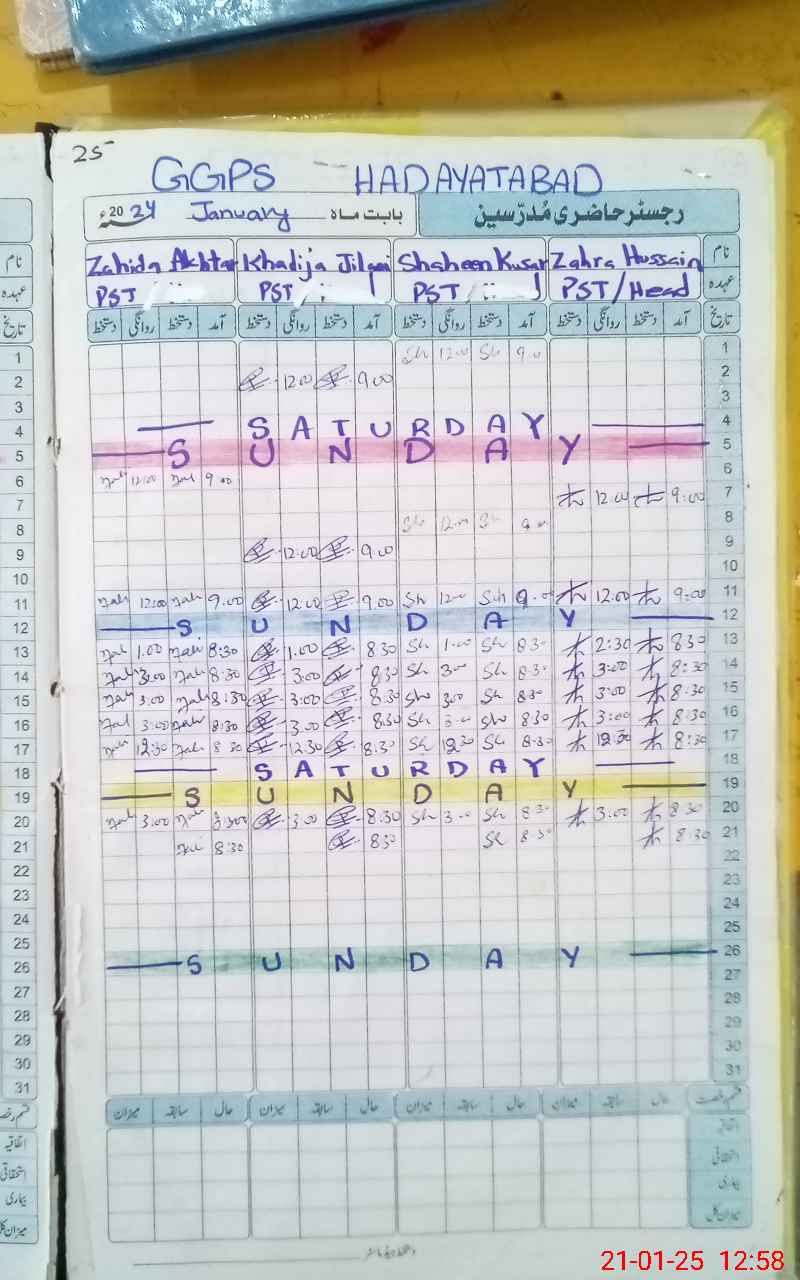 25
GGPS HADAYATABAD
رجسٹر حاضری مُدرّسین بابت ماہ January 2024ء
نام Zahra Hussain Shaheen Kusar Khadija Jilani Zahida Akhtar
عہدہ PST/Head PST/ PST/ PST/
تاریخ آمد دستخط روانگی دستخط آمد دستخط روانگی دستخط آمد دستخط روانگی دستخط آمد دستخط روانگی دستخط
1 Sh 12.00 Sh 9.00 1
2 12.00 9.00 2
3 3
4 SATURDAY 4
5 SUNDAY 5
6 12:00 9.00 6
7 12.00 9:00 7
8 Sh 12.00 Sh 9.00 8
9 12.00 9.00 9
10 10
11 12:00 9.00 12.00 9.00 Sh 12.00 Sh 9.00 12.00 9:00 11
12 SUNDAY 12
13 1.00 8:30 1.00 8.30 Sh 1.00 Sh 8.30 2:30 8.30 13
14 3.00 8.30 3.00 8.30 Sh 3.00 Sh 8.30 3:00 8:30 14
15 3.00 8:30 3.00 8.30 Sh 3.00 Sh 8.30 3:00 8.30 15
16 3.00 8.30 3.00 8.30 Sh 3.00 Sh 8.30 3:00 8:30 16
17 12:30 8.30 12.30 8.30 Sh 12.30 Sh 8.30 12.30 8:30 17
18 SATURDAY 18
19 SUNDAY 19
20 3.00 3.00 8.30 Sh 3.00 Sh 8.30 3.00 8.30 20
21 8:30 8.30 Sh 8.30 8.30 21
22 22
23 23
24 24
25 25
26 SUNDAY 26
27 27
28 28
29 29
30 30
31 31
قسم رخصت حال سابقہ میزان حال سابقہ میزان حال سابقہ میزان حال سابقہ میزان
اتفاقیہ
استحقاقی
بیماری
میزان کل
دستخط ہیڈ ماسٹر
21-01-25 12:58